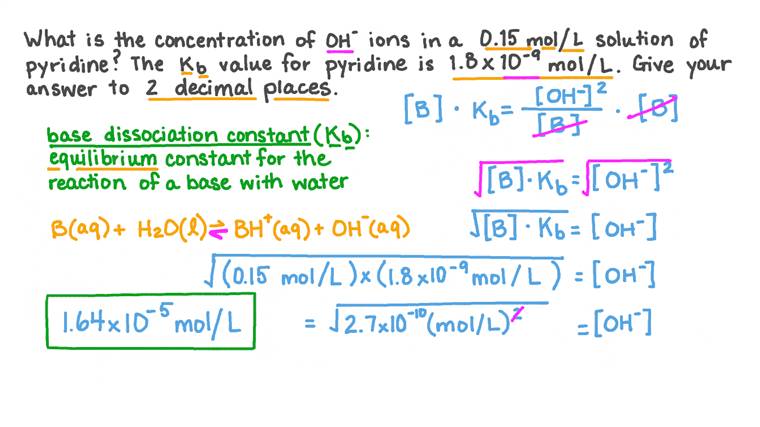 What is the concentration of OH⁻ ions in a 0.15 mol/L solution of
pyridine? The Kb value for pyridine is 1.8 x 10⁻⁹ mol/L. Give your
answer to 2 decimal places.
[B] · Kb = [OH⁻]² / [B] · [B]
base dissociation constant (Kb):
equilibrium constant for the
reaction of a base with water
√[B] · Kb = √[OH⁻]²
B(aq) + H2O(l) ⇌ BH⁺(aq) + OH⁻(aq)
√[B] · Kb = [OH⁻]
√(0.15 mol/L) x (1.8 x 10⁻⁹ mol/L) = [OH⁻]
1.64 x 10⁻⁵ mol/L = √2.7 x 10⁻¹⁰ (mol/L)² = [OH⁻]